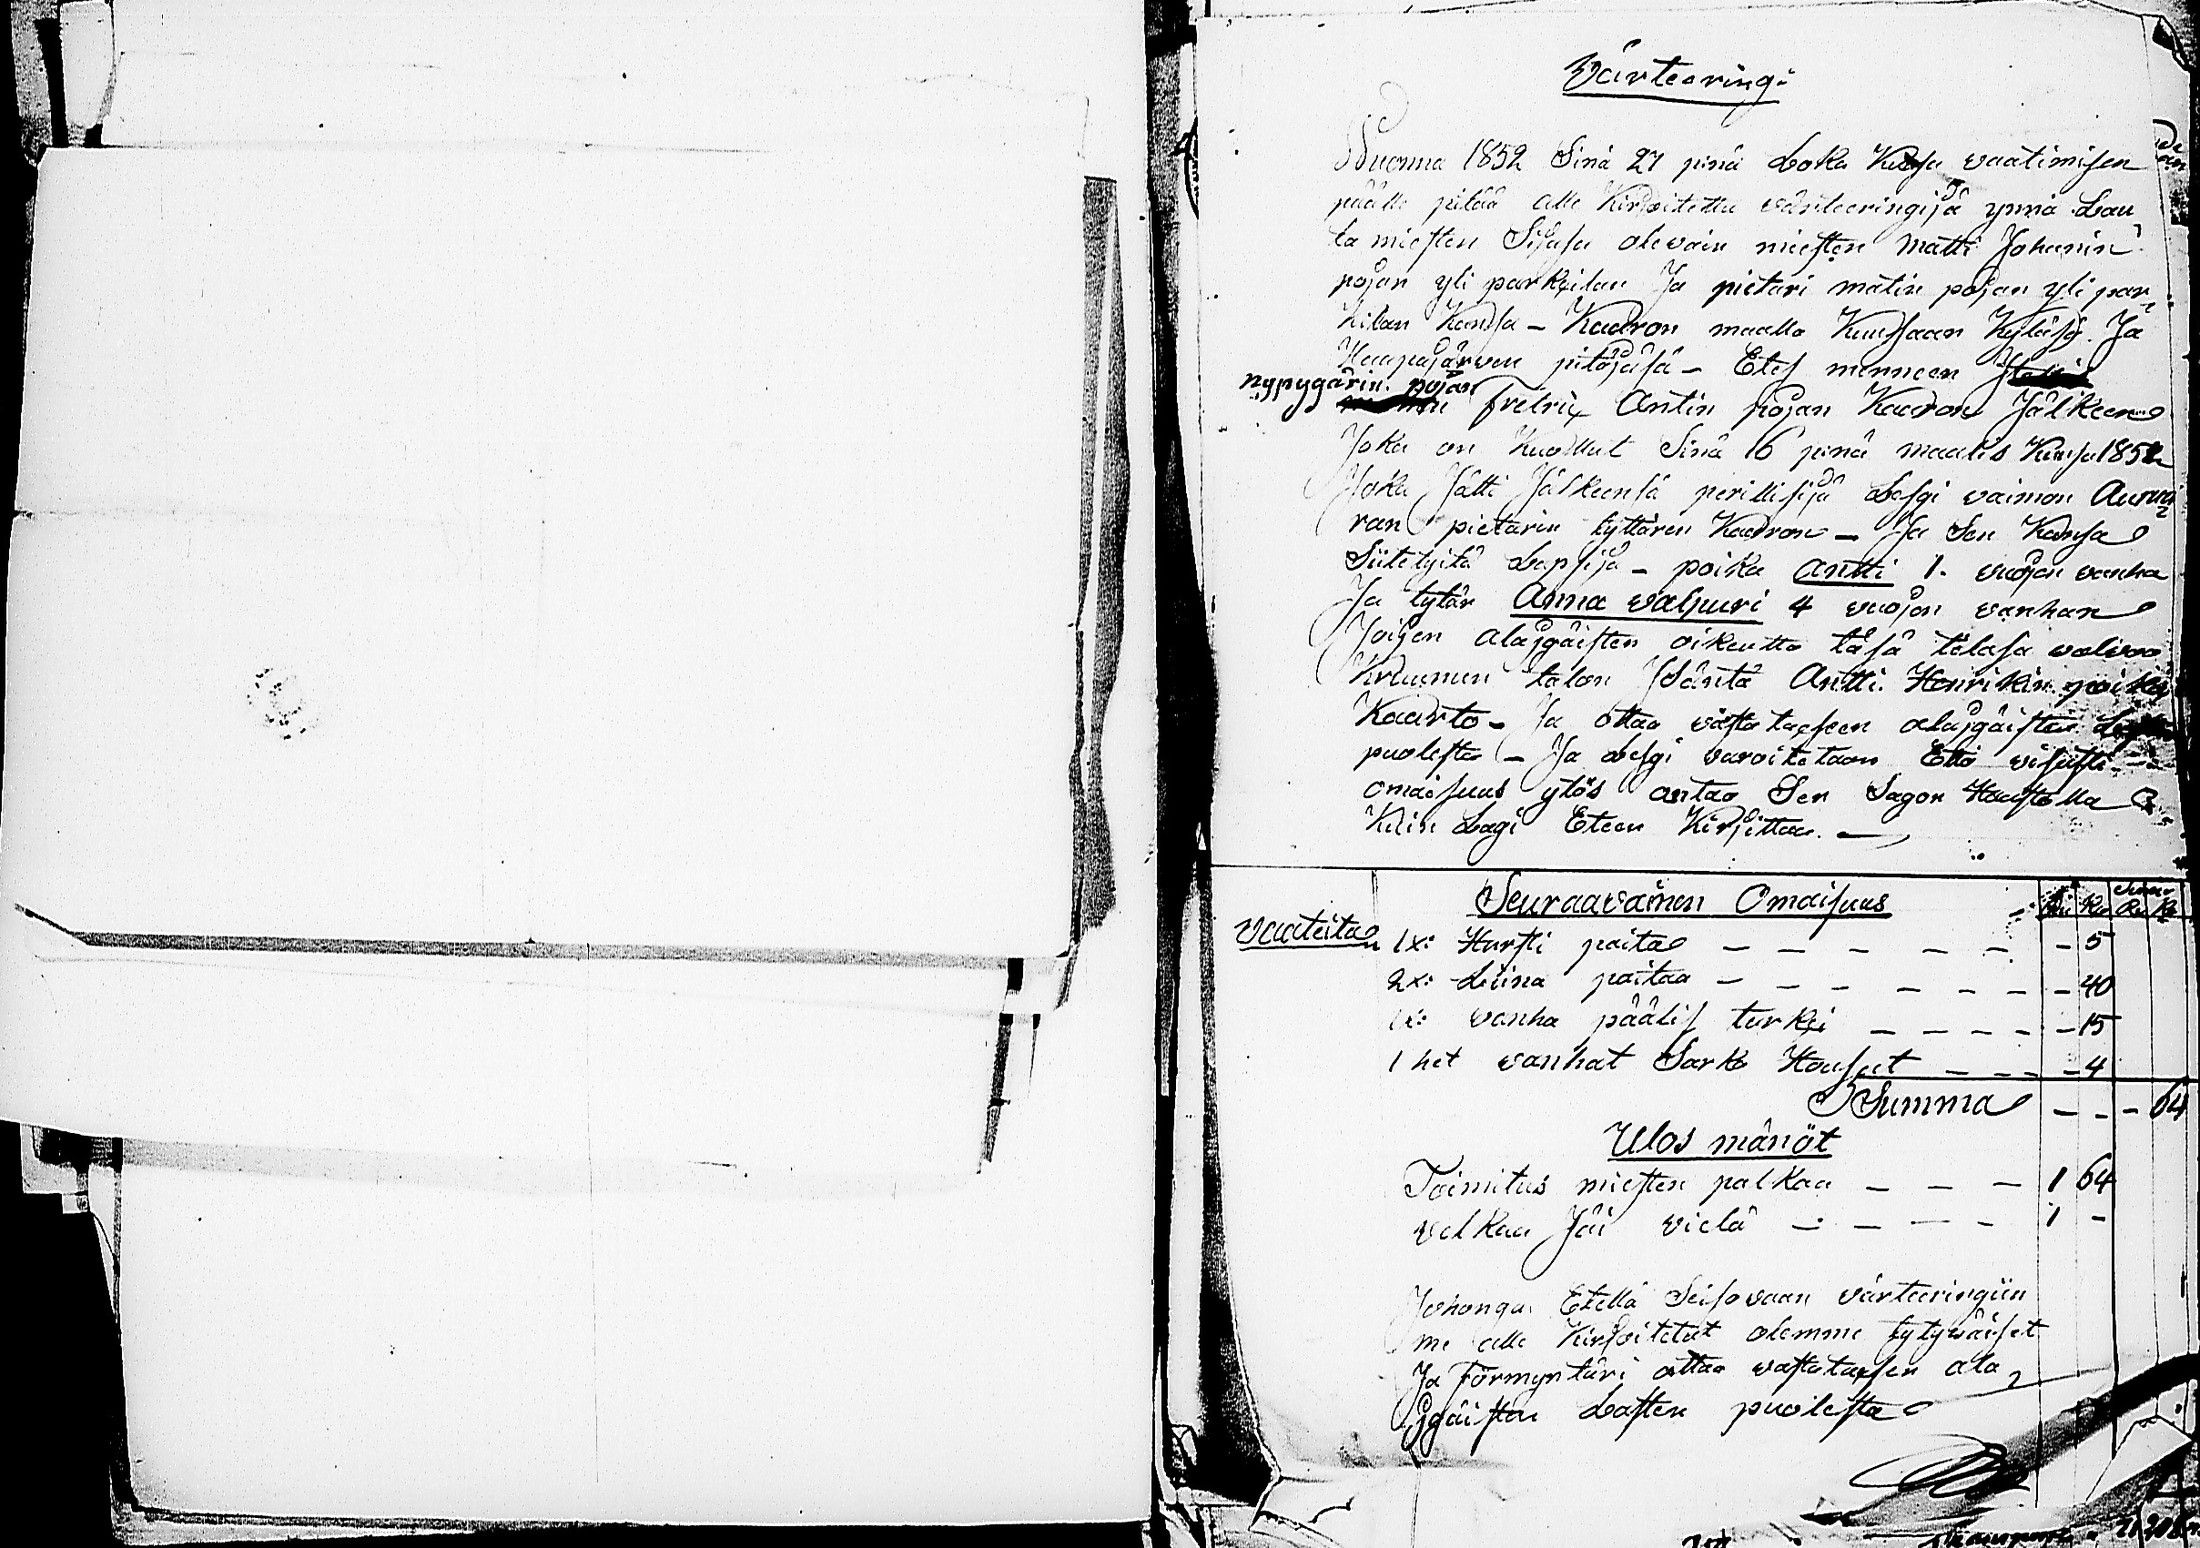 Värteeringi
Wuonna 1852 Sinä 27 pnä Loka Kuusa vaatimisen
päälle pitää alle Kirjoitettu värteeringijä ynnä Lau
ta miesten Sijasa olevain miesten Matti Johanin
pojan yli parkkilan Ja pietari matin pojan yli par
Kilan Kansa - Kaadron maalla Kuusaan Kyläsä. Ja
Haapajärven pitäjäsä - Etes menneen
nypygärin. pojan
fretrix Antin pojan Kaadron Jälkeen
Joka on Kuollut Sinä 16 pnä maalis Kuusa 1852
Joka Jätti Jälkeensä perillisijä Lesgi vaimon
ran pietarin tyttären Kaadron - Ja Sen Kansa
Siitetyitä Lapsija - poika Antti 1. vuojen vanha
Ja tytär Anna valpuri 4 vuojen vanhan
Joijen alajgäisten oikeutta täsä tilasa valvoo
Kruunun talon Isäntä Antti Henrikin poika
Kaarto - Ja ottaa vasta taxseen alajgäisten
puolesta - Ja Lesgi varoitetaan Että visusti
omaisuus ylös antaa Sen Sagon Haastolla
Kuin Lagi Eteen Kirjoittaa. —
Seuraavainen Omaisuus
vaateita 1x: Hursti paita - - - - - - 5
2x: Liina paitaa - - - - - - - 40
1x: vanha päälis turkki - - - - - 15
1 het vanhat Sarka Housut - - - - 4
Summa - - - 64
Ulos mänöt
Toimitus miesten palkaa - - - 1 64
velkaa Jäi vielä - - - - 1 -
Johonga Etellä Seisovaan värteeringiin
me alle Kirjoitetut olemme tytyväiset
Ja Förmyntäri ottaa vastataxsen ala
jgäisten Lasten puolesta